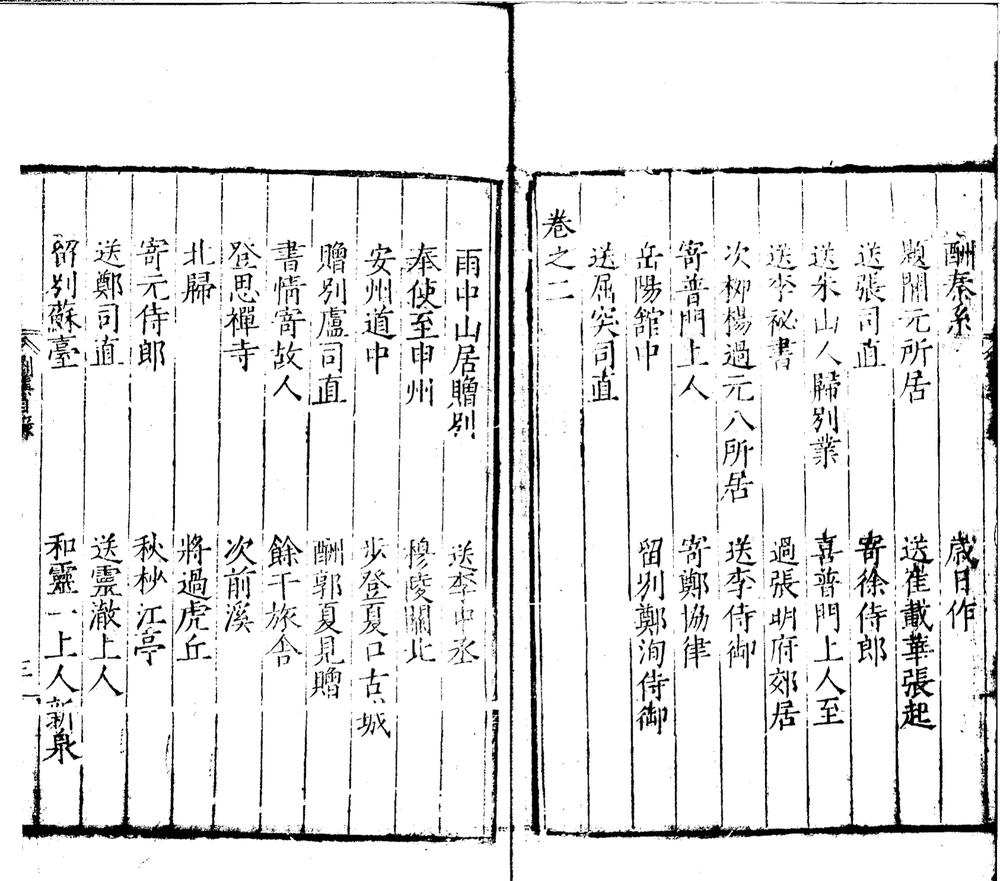 酬秦系　歲日作
題開元所居　送崔載華張起
送張司直　寄徐侍郎
送朱山人歸別業　喜普門上人至
送李祕書　過張明府郊居
次柳楊過元八所居　送李侍御
寄普門上人　寄鄭協律
岳陽館中　留別鄭洵侍御
送屈突司直
卷之二
雨中山居贈別　送李中丞
奉使至申州　穆陵關北
安州道中　步登夏口古城
贈別盧司直　酬郭夏見贈
書情寄故人　餘干旅舍
登思禪寺　次前溪
北歸　將過虎丘
寄元侍郎　秋杪江亭
送鄭司直　送靈澈上人
留別蘇臺　和靈一上人新泉
目錄